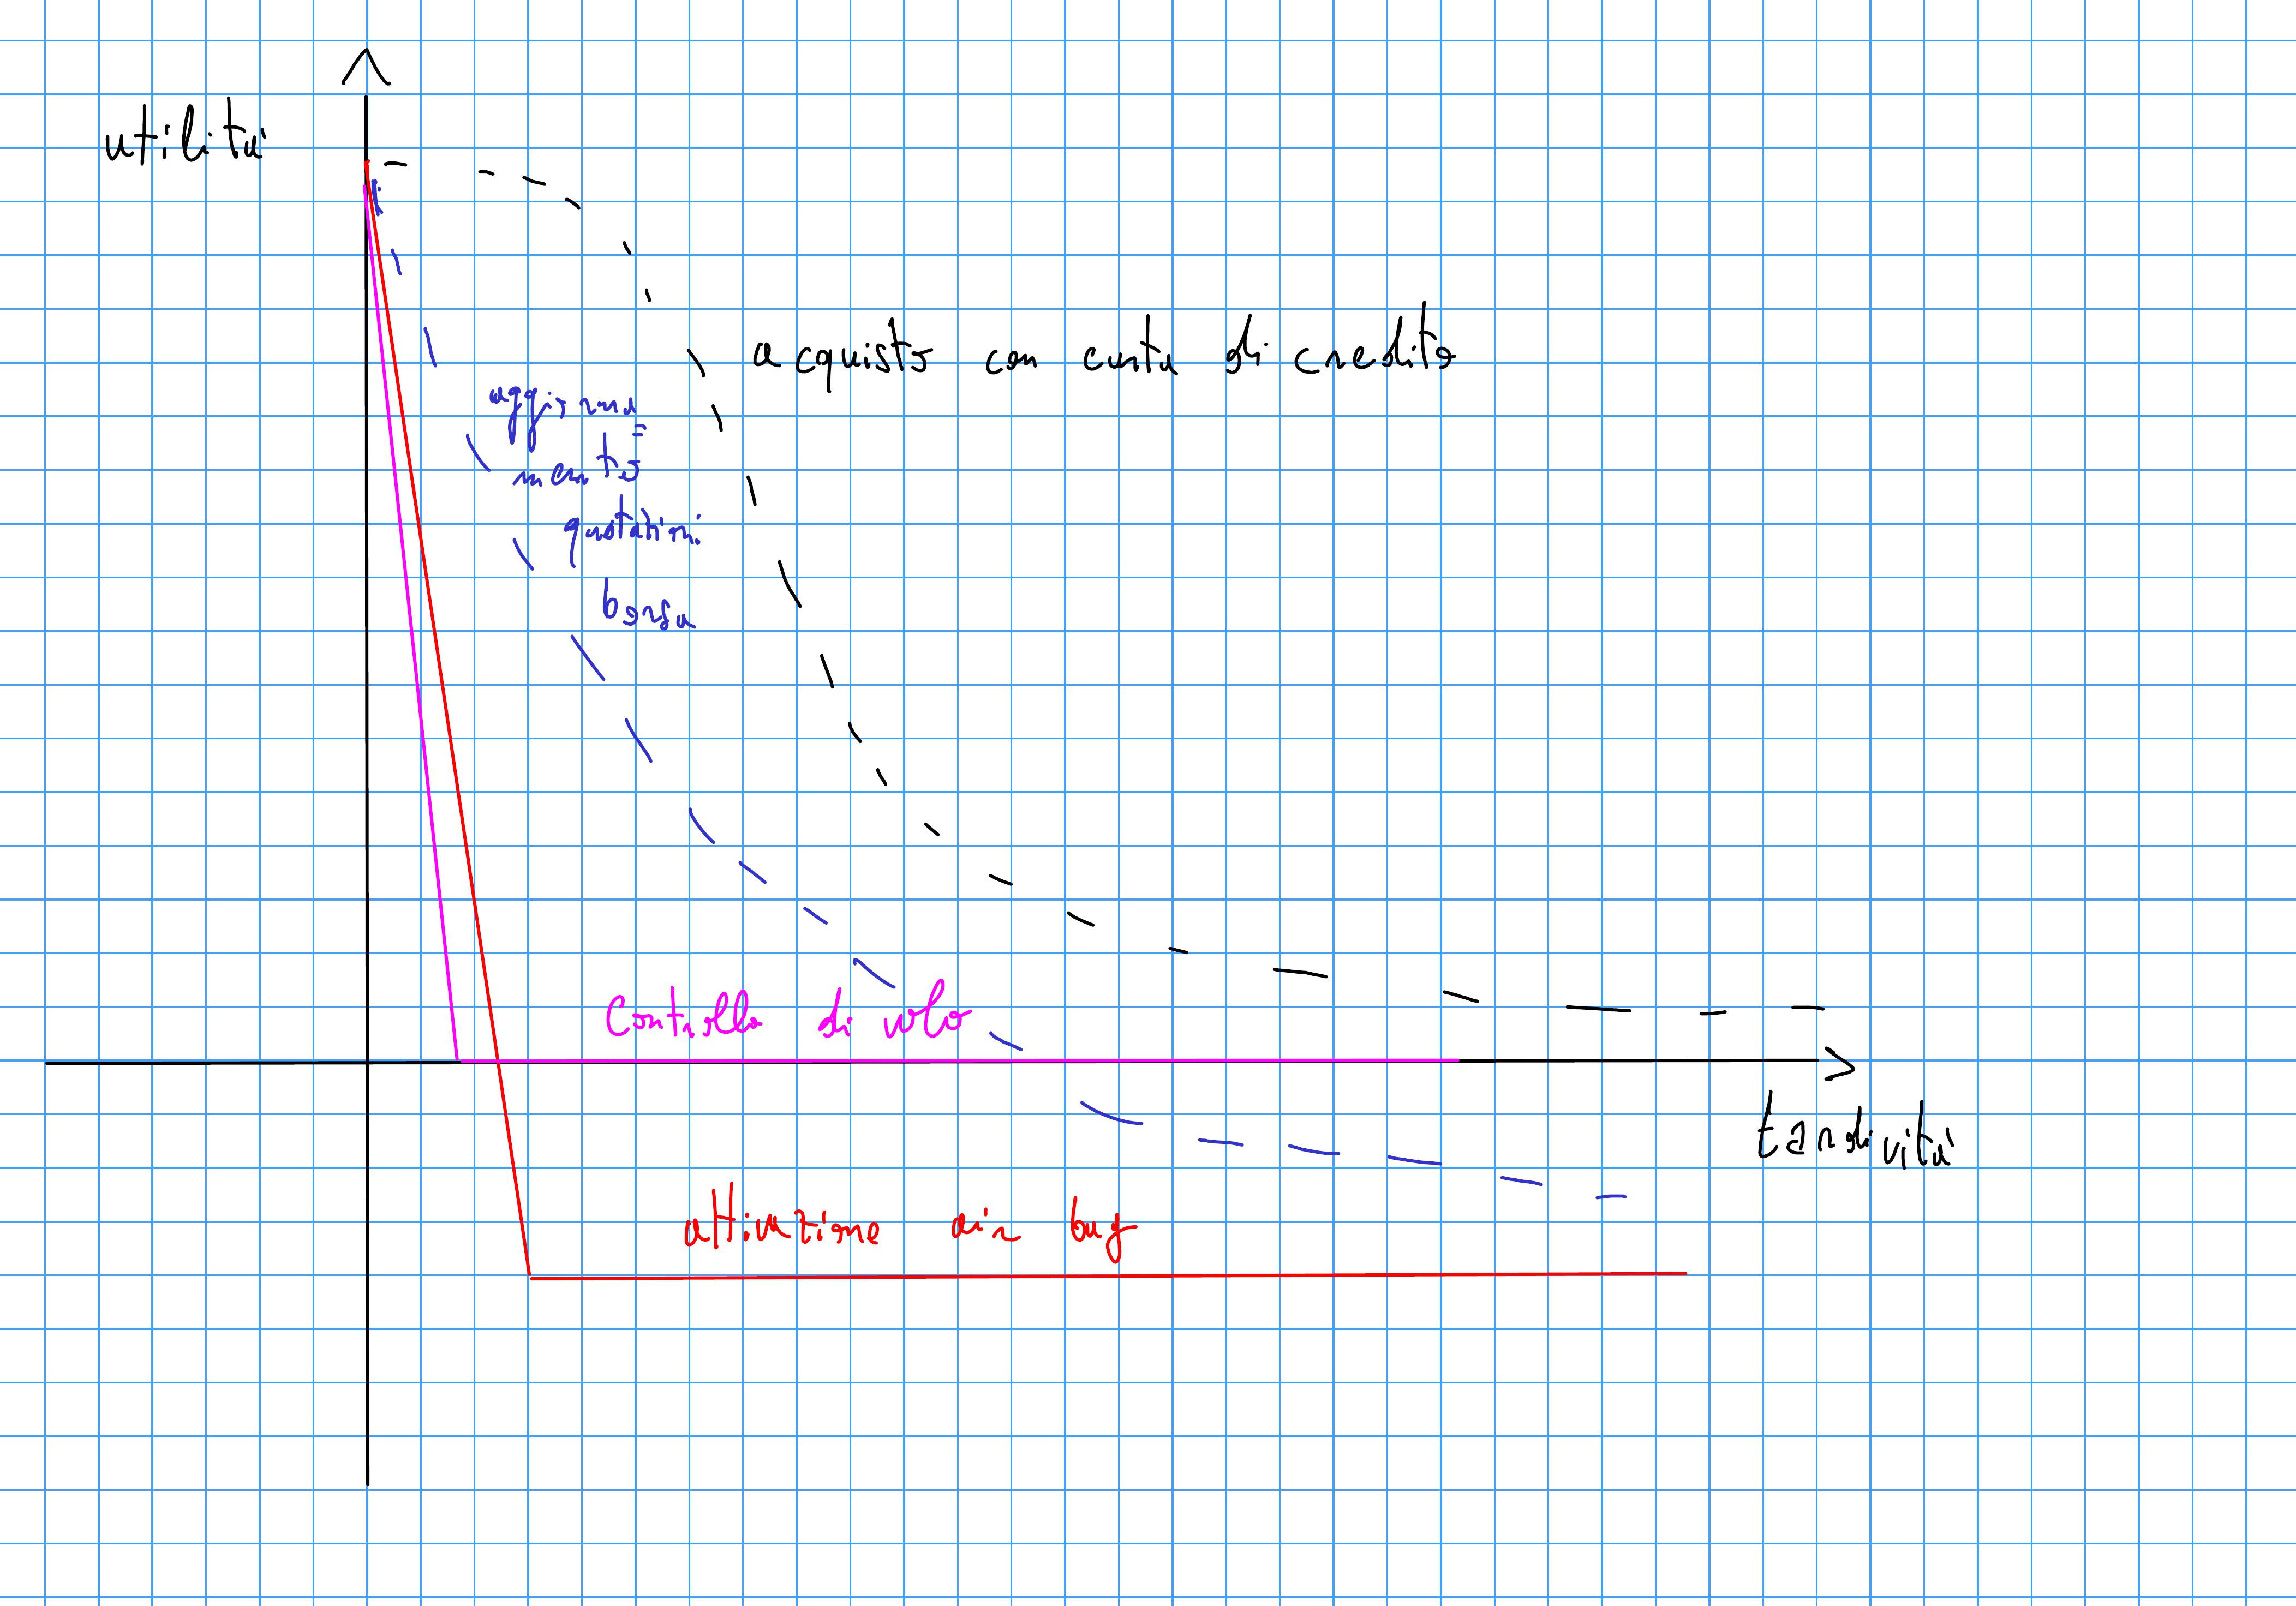 utilità
acquisto con carta di credito
aggiorna=
mento
quotazioni
borsa
Controllo di volo
tardività
attivazione air bag